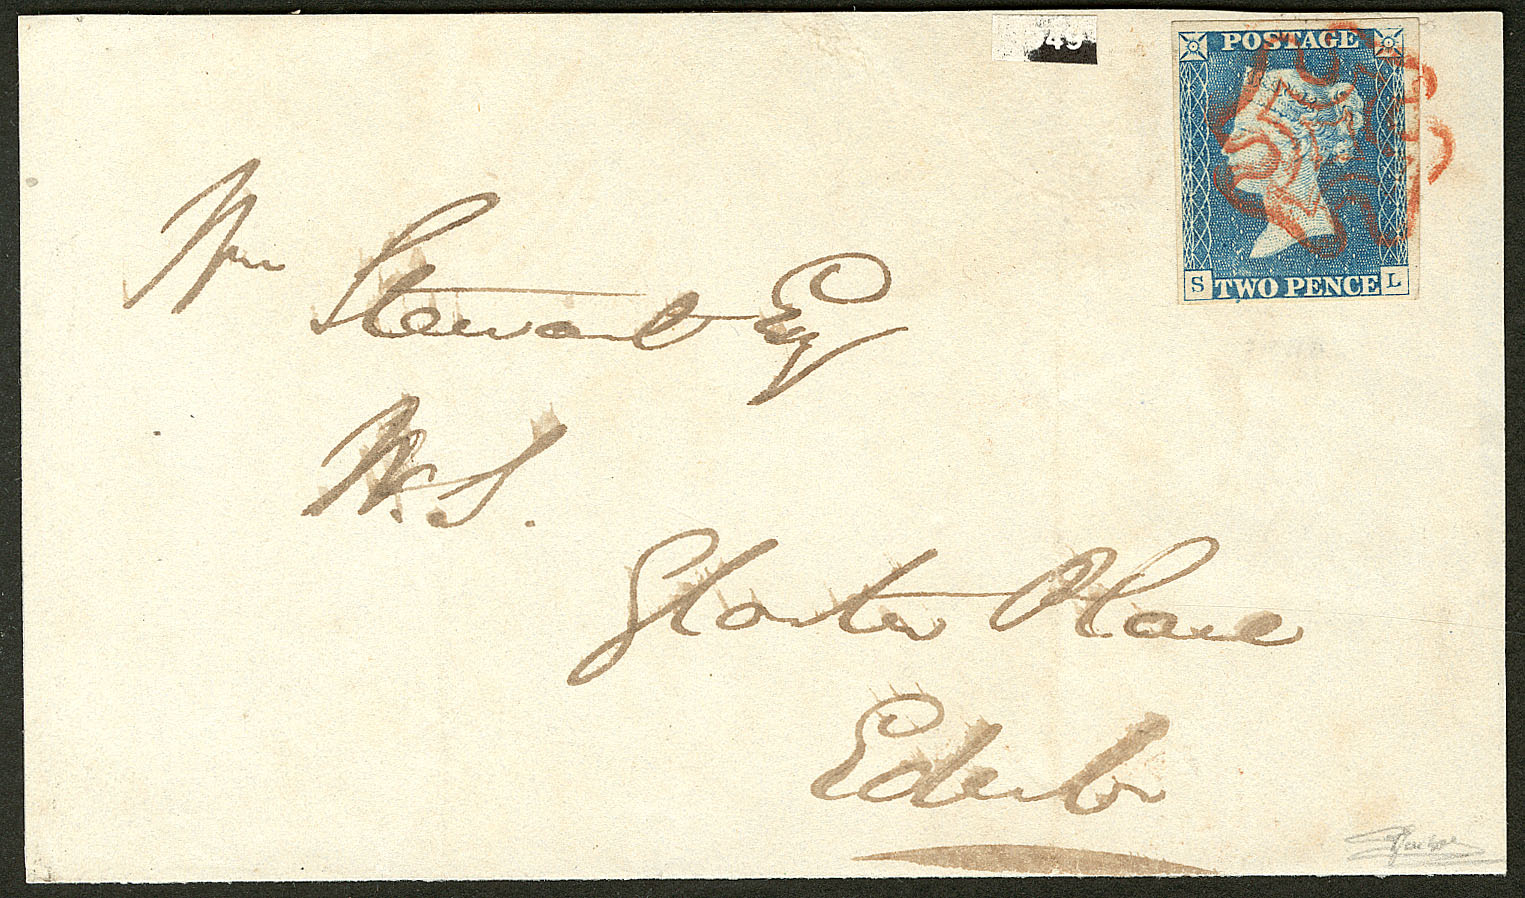 49
POSTAGE
S TWO PENCE L
Wm Stewart Esq
W.S.
Gloster Place
Edinbr